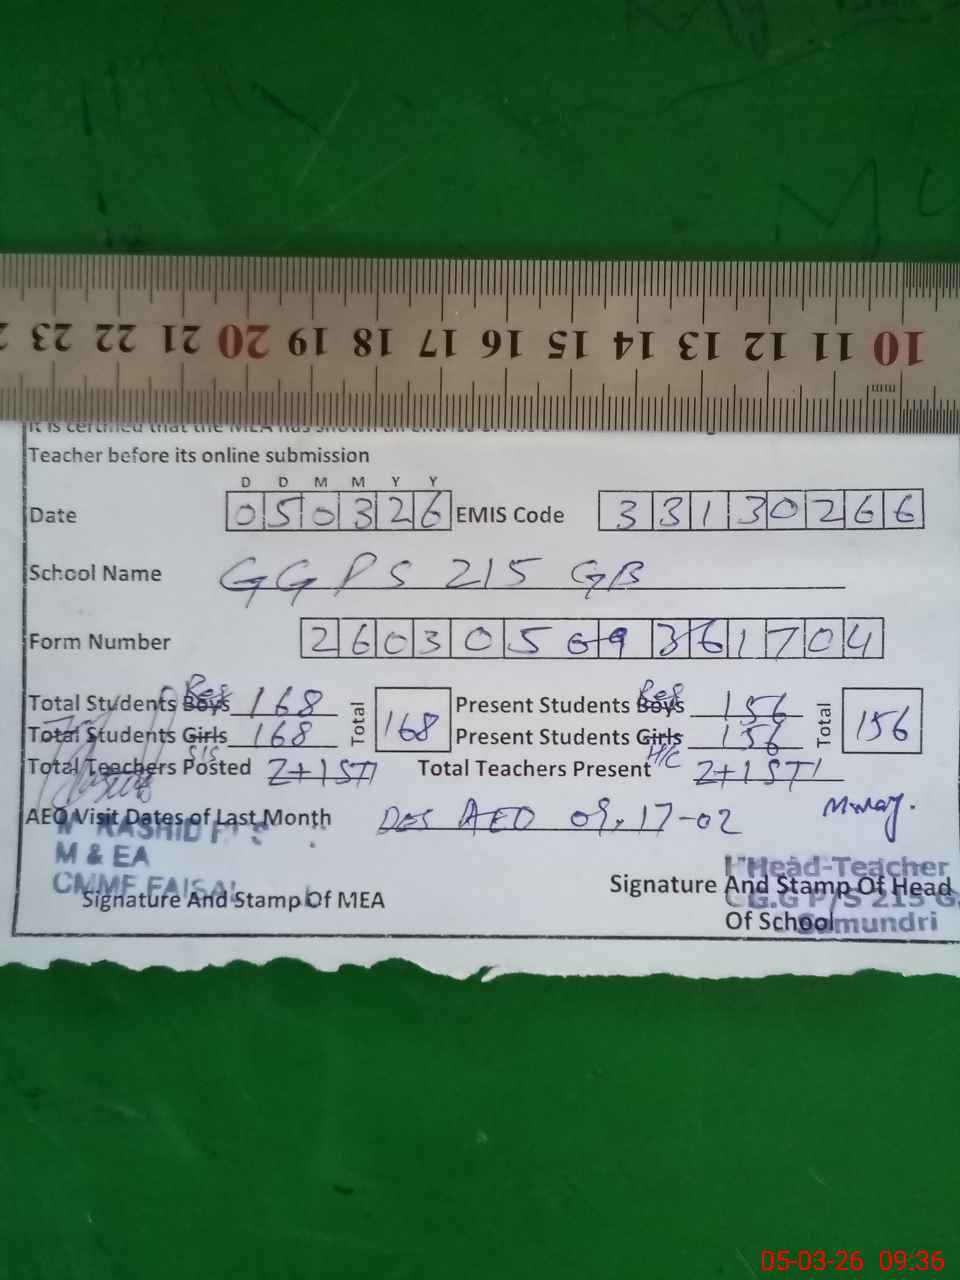 23 22 21 20 19 18 17 16 15 14 13 12 11 10
mm
Teacher before its online submission
D D M M Y Y
Date 050326 EMIS Code 33130266
School Name GGPS 215 GB
Form Number
Total Students Boys Reg 168 Total 168 Present Students Boys Reg 156 Total 156
Total Students Girls SIS 168 Present Students Girls H/C 156
Total Teachers Posted 2+1 STI Total Teachers Present 2+1 STI
AEO Visit Dates of Last Month DES AEO 09, 17-02
RASHID
M & EA
CMMF FAISAL
Signature And Stamp Of MEA
Head-Teacher
Signature And Stamp Of Head
G.G P/S 215 G.
Of School
Samundri
05-03-26 09:36